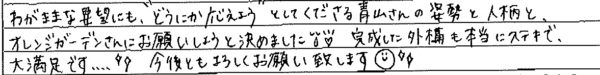 わがままな要望にも、どうにか応えようとしてくださる青山さんの姿勢と人柄と、
オレンジガーデンさんにお願いしようと決めました!! 完成した外構も本当にステキで、
大満足です....!! 今後ともよろしくお願い致します